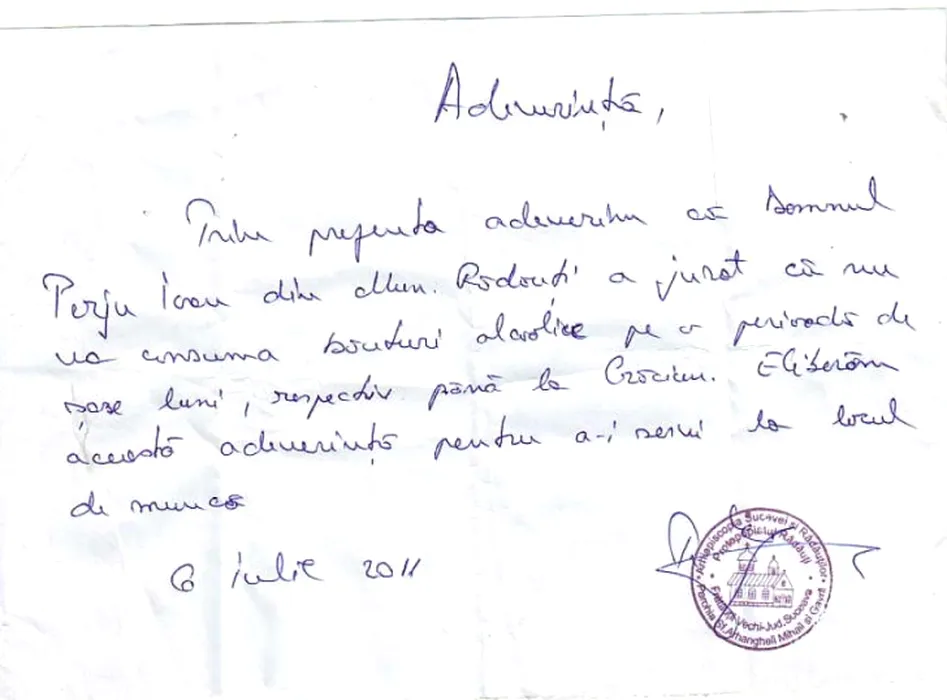 Adeverință,
Prin prezenta adeverim că Domnul
Perju Ioan din Mun. Rădăuți a jurat că nu
va consuma băuturi alcolice pe o perioadă de
șase luni, respectiv până la Crăciun. Eliberăm
această adeverință pentru a-i servi la locul
de muncă
6 iulie 2011
Arhiepiscopia Sucevei si Rădăuților
Protopopiatul Rădăuți
Vechi-Jud. Suceava
Parohia Sf. Arhangheli Mihail si Gavril